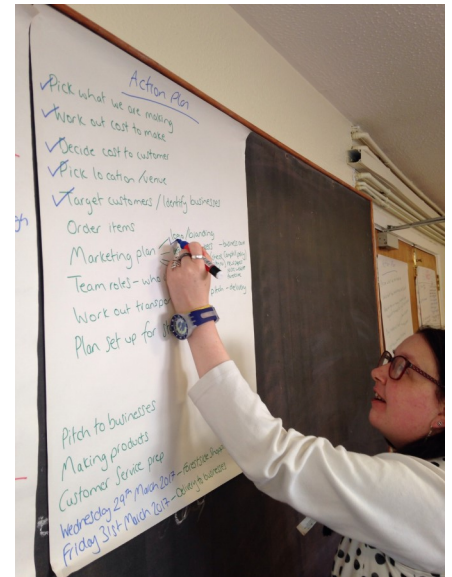 Action Plan
Pick what we are making
Work out cost to make
Decide cost to customer
Pick location/venue
Target customers / Identify businesses
Order items
Marketing plan logo/branding
Team roles - who
Work out transpo pitch - delivery
Plan set up for
Pitch to businesses
Making products
Customer Service prep
Wednesday 29th March 2017 - forestside
Friday 31st March 2017 - Delivery to businesses